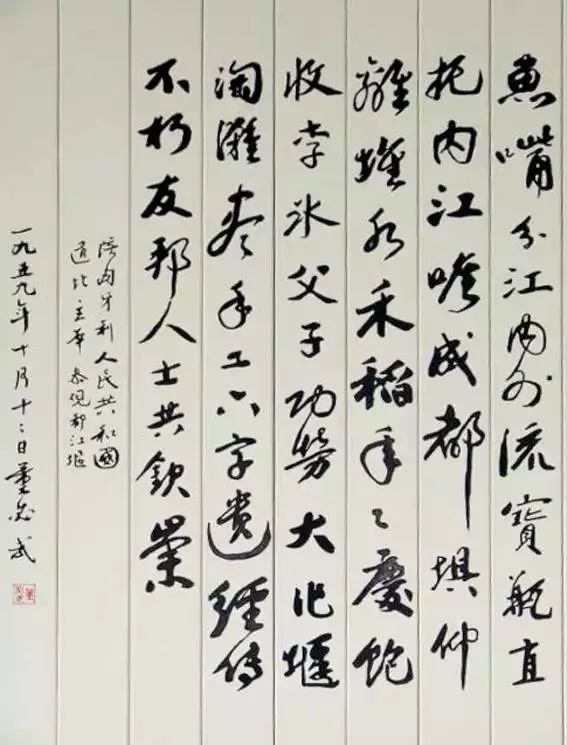 魚嘴分江內外流寶瓶直
扼内江喉成都埧仰
離堆水禾稻年〻慶飽
收李冰父子功勞大作堰
淘灘盡手工六字遺經傳
不朽友邦人士共欽崇
陪匈牙利人民共和國
道比主席參觀都江堰
一九五九年十月十二日董必武